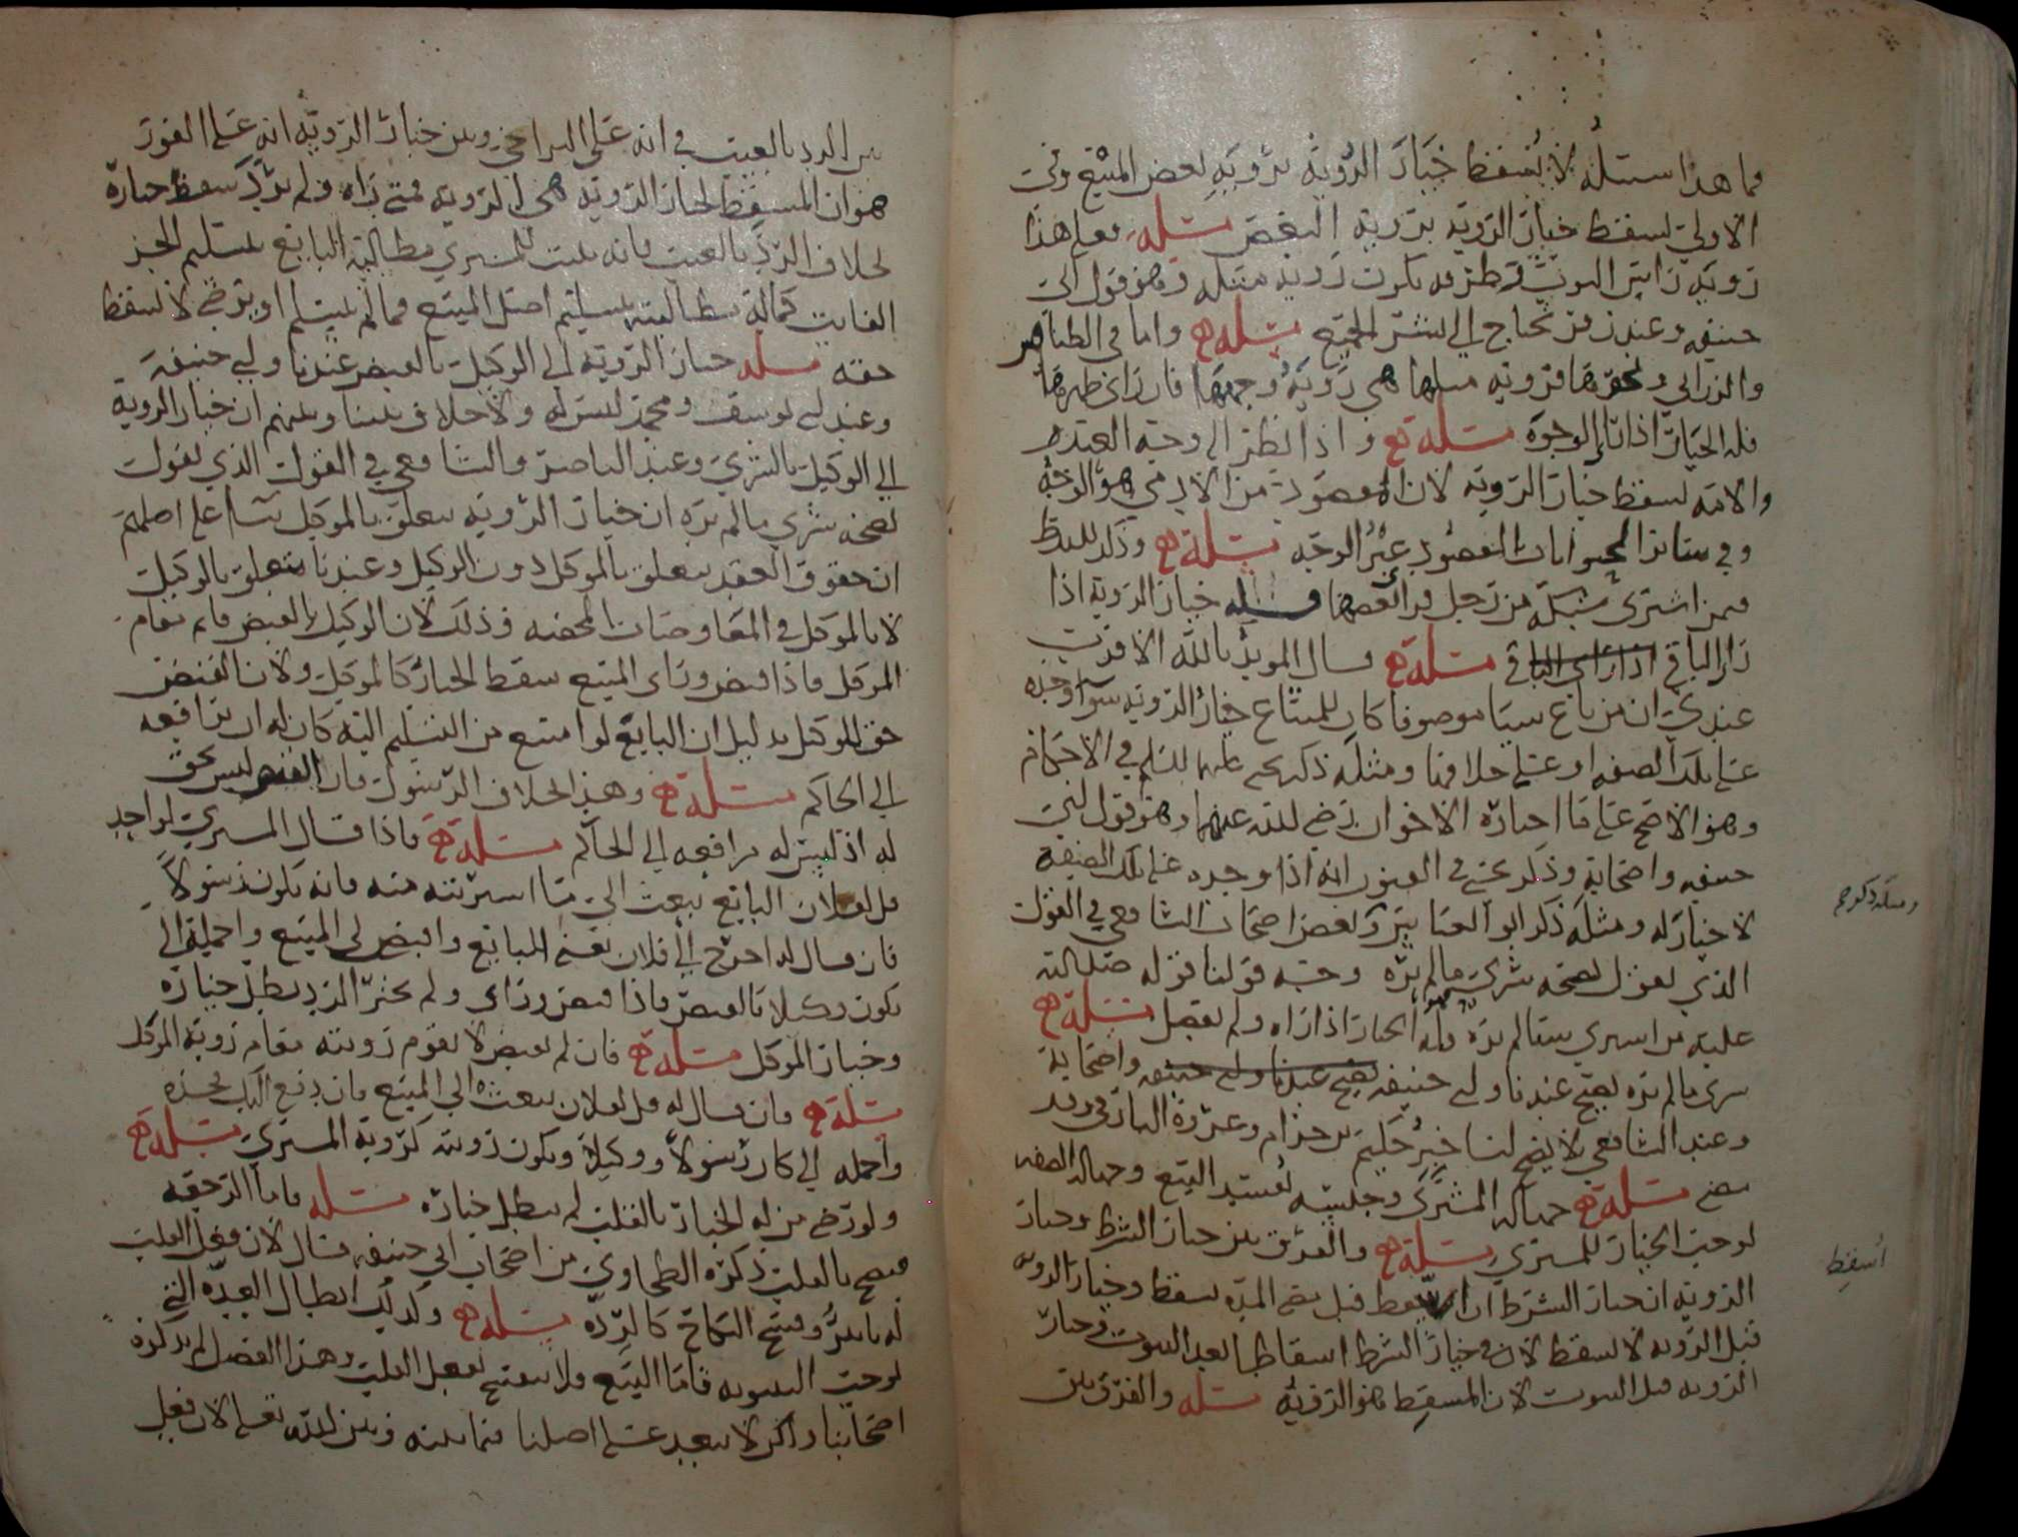 فما هذا سبيله لا يُسقط خيار الرؤية برؤيةِ بعض المبيع وفي
الاولى يسقط خيار الرؤية برؤية البعض مسئلة فعلى هذا
رؤية رأس الثوب وطرفه تكون رؤية مثله وهو قول ابي
حنيفه وعند زفر يحتاج الى نشر الجميع مسئلة وأما في الطنافس
والزرابي ونحوها فرؤية مثلها هي رؤية وجهها فان رأى ظهرها
فله الخيار اذا رأى الوجوه مسئلة واذا نظر الى وجه العبد
والامه يسقط خيار الرؤية لان المقصود من الآدمي هو الوجه
وفي سائر الحيوانات المقصود غير الوجه مسئلة وذكر
فيمن اشترى من رجل فرأى بعضها فله خيار الرؤية اذا
رأى الباقي اذا رأى الباقي مسئلة قال المؤيد بالله الاقرب
عندي ان من باع شيئا موصوفا كان للمبتاع خيار الرؤية سواً وجده
على تلك الصفه او على خلافها ومثله ذكر يحيى عليه السلم في الاحكام
وهو الاصح على ما اختاره الاخوان رضي الله عنهما وهو قول ابي
حنيفه واصحابه وذكر يحيى في الفنون انه اذا وجده على تلك الصفة
لا خيار له ومثله ذكر ابو العباس وبعض اصحاب الشافعي في القول
الذي يقول بصحة شرى ما لم يره وجه قولنا قوله صلى الله
عليه من اشترى شيئا لم يره فله الخيار اذا رآه ولم يفصل مسئلة
شرى ما لم يره يصح عندنا وابي حنيفه يصح عندنا وابي حنيفه واصحابه
وعند الشافعي لا يصح لنا خبر حكيم بن حزام وعروة البارقي وقد
مضى مسئلة جهالة المشترى وجنسه يُفسد البيع وجهالة الصفه
توجب الخيار للمشتري مسئلة والفرق بين خيار الشرط وخيار
الرؤية ان خيار الشرط ان اسقط قبل مضي المدة سقط وخيار الرؤية
قبل الرؤية لا يسقط لان في خيار الشرط اسقاطا بعد الثبوت وخيار
الرؤية قبل الثبوت لان المسقط هو الرؤية مسئلة والفرق بين
ومثله ذكر يحيى
اُسقِط
بين الرد بالعيب في انه على التراخي وبين خيار الرؤية انه على الفور
هو ان المسقط لخيار الرؤية هي الرؤية فمتى رآه ولم يرد سقط خياره
بخلاف الرد بالعيب فانه يثبت للمشتري مطالبة البايع بتسليم الجزء
الفايت كما له مطالبته بتسليم اصل المبيع فما لم يتسلم او يرضى لا يسقط
حقه مسئلة خيار الرؤية الى الوكيل بالقبض عندنا وابي حنيفة
وعند ابي يوسف ومحمد ليس له ولا خلاف بيننا وبينهم ان خيار الرؤية
الى الوكيل بالشرى وعند الناصر والشافعي في القول الذي يقول
بصحة شرى ما لم يره ان خيار الرؤية يتعلق بالموكل بناً على اصلهم
ان حقوق العقد يتعلق بالموكل دون الوكيل وعندنا يتعلق بالوكيل
لا بالموكل في المعاوضات المحضه وذلك لان الوكيل بالقبض قايم مقام
الموكل فاذا قبض ورأى المبيع سقط الخيار كالموكل ولان القبض
حق للموكل بدليل ان البايع لو امتنع من التسليم اليه كان له ان يرافعه
الى الحاكم مسئلة وهذا بخلاف الرسول فان القبض ليس بحق
له اذ ليس له مرافعه الى الحاكم مسئلة فاذا قال المشتري لواحد
قل لفلان البايع يبعث الي ما اشتريته منه فانه يكون رسولاً
فان قال له اخرج الى فلان يعني البايع واقبض لي المبيع واحمله الي
يكون وكيلا بالقبض فاذا قبض ورأى ولم يختر الرد بطل خياره
وخيار الموكل مسئلة فان لم يقبض لا يقوم رؤيته مقام رؤية الموكل
مسئلة فان قال له قل لفلان يبعث الي المبيع فان دفع اليك فخذه
واحمله الي كان رسولاً ووكيلاً ويكون رؤيته كرؤية المشتري مسئلة
ولو رضي من له الخيار بالقلب لم يبطل خياره مسئلة فاما الرجعه
فيصح بالقلب ذكره الطحاوي من اصحاب ابي حنيفه قال لان فعل القلب
له تاثير في فسخ النكاح كالردة مسئلة وكذلك ابطال العدة التي
توجب البينونه فاما البيع فلا ينفسخ بفعل القلب وهذا الفصل لم يذكره
اصحابنا ولكن لا يبعد على اصلنا فيما بينه وبين الله تعلى لان فعل